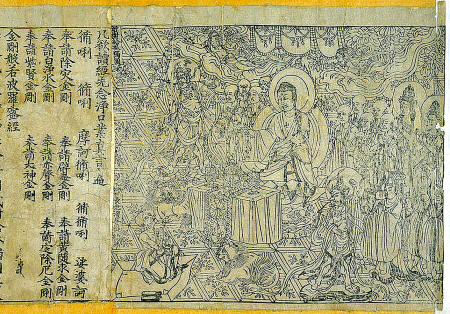 凡欲讀經先念淨口業真言一遍
脩唎 脩唎 摩訶脩唎 脩脩唎 娑婆訶
奉請除災金剛 奉請辟毒金剛 奉請黃隨求金剛
奉請白淨水金剛 奉請赤聲金剛 奉請定除厄金剛
奉請紫賢金剛 奉請大神金剛
金剛般若波羅蜜經